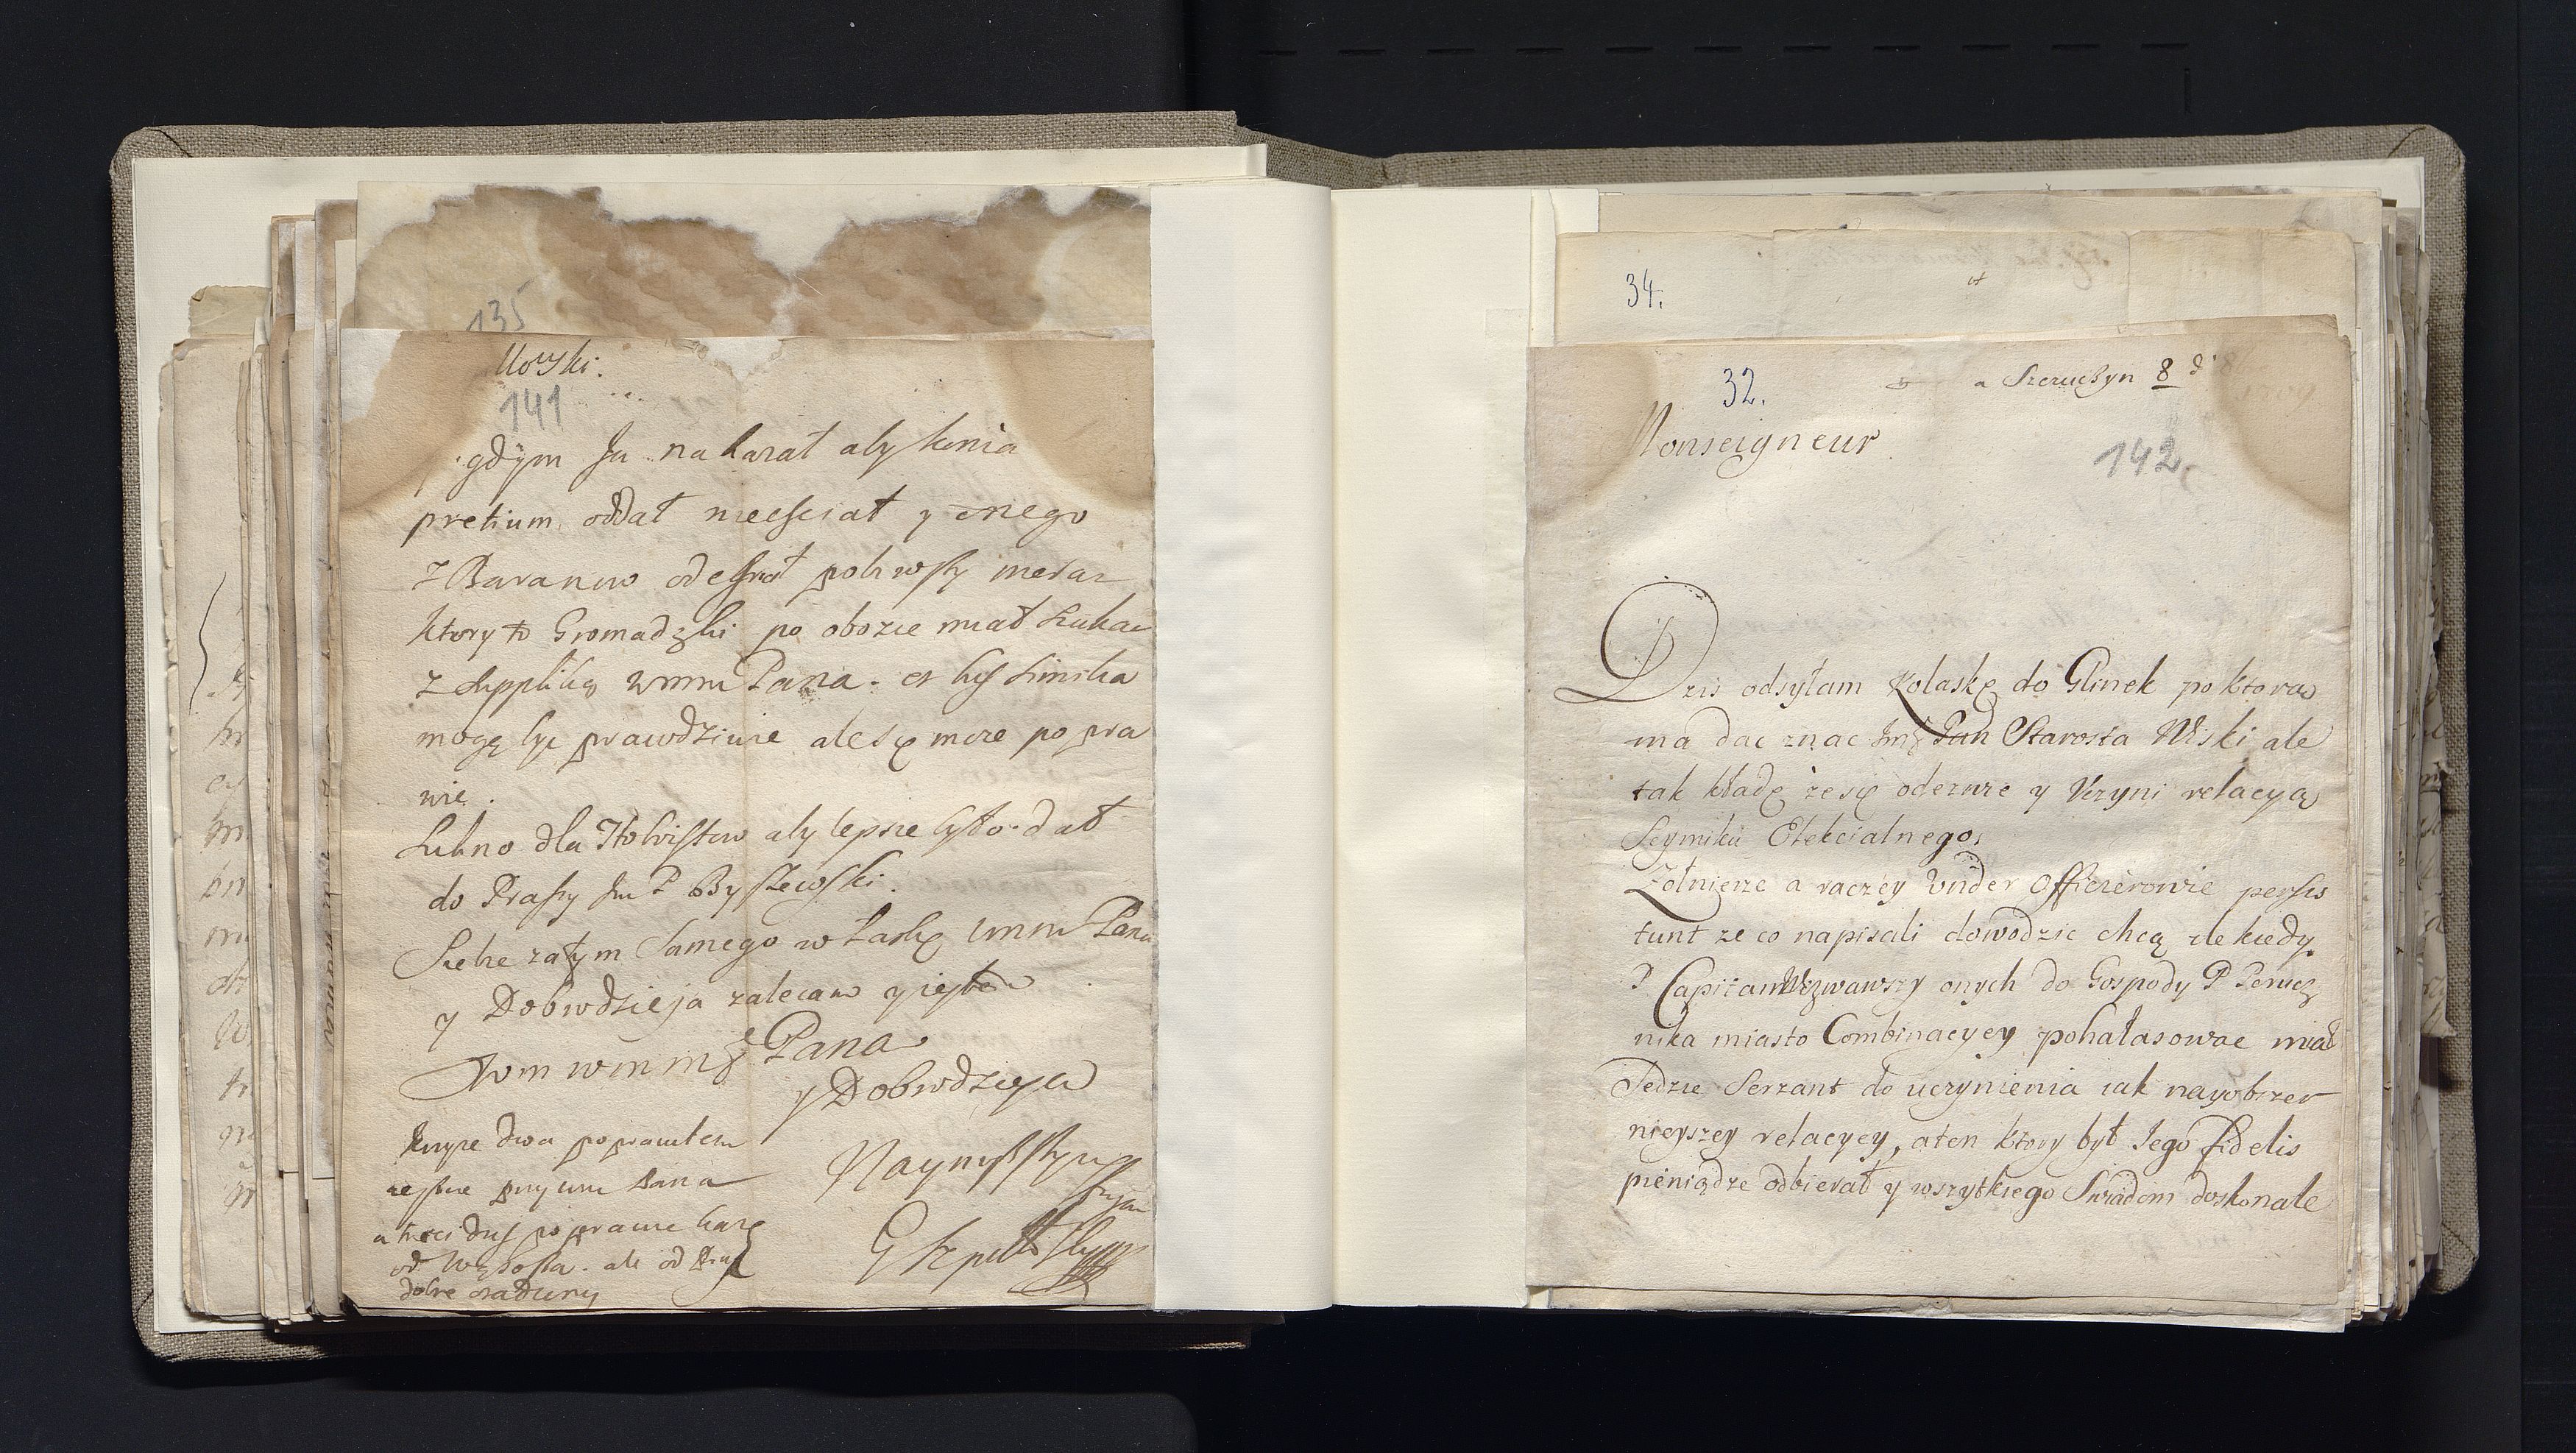 135
141
gdym Ja nakazał aby konia
pretium oddał niechciał y onego
z Baranow odesłał
ktory to Gromadzki po obozie miał szukac
z suppliką wmm Pana. et his similia
mogą byc prawdziwe ale się moze popra
wic.
Sukno dla aby lepsze było dał
do Prassy Jm P Byszewski.
Siebie zatym samego w łaskę wmm Pana
y Dobrodzieja zalecam y iestem
wm wm mg Pana
y Dobrodzieja
dwa poprawiłem
Pana
a trzeci dus poprawic karzę
od ale od
dobre
34.
32.
a Szczuczyn 8 d
142.
Monseigneur
Dzis odsyłam Kolaskę do Glinek po ktorą
ma dac znac Jmg Pan Starosta Wiski ale
tak kładę ze się odezwie y Uczyni relacyą
Seymiku Elekcialnego,
Zołnierze a raczey Under Officierowie persis
tunt ze co napisali dowodzic chcą ale kiedy
P Capitan Wezwawszy onych do Gospody P Porucz
nika miasto Combinacyey pohałasowac miał
Jedzie Serzant do uczynienia iak nayobszer
nieyszey relacyey, a ten ktory był Jego fidelis
pieniądze odbierał y wszytkiego Swiadom doskonale